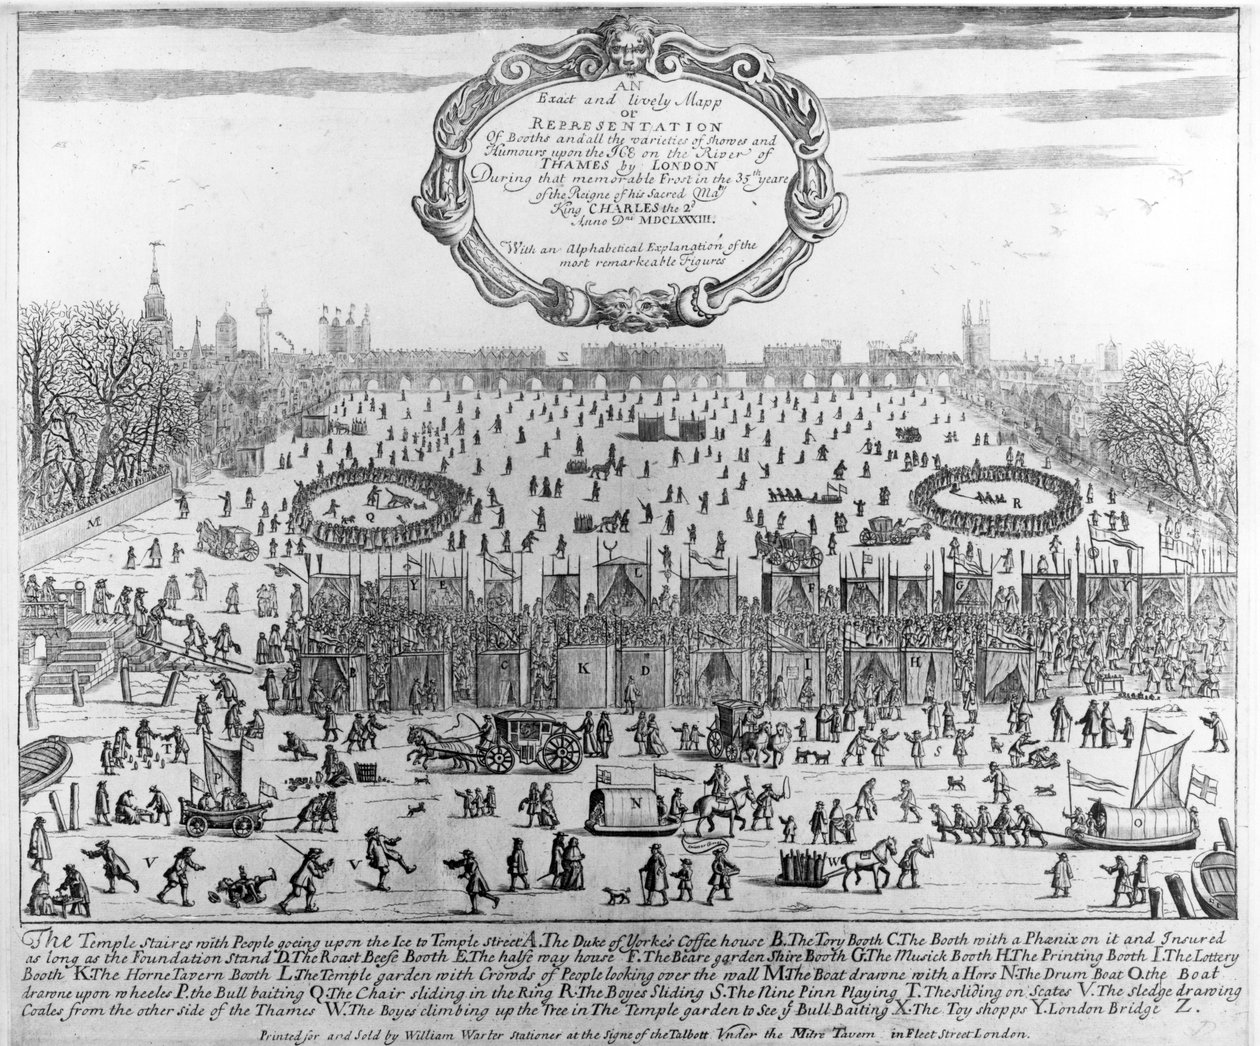 AN
Exact and lively Mapp
or
REPRESENTATION
Of Booths and all the varieties of showes and
Humours upon the ICE on the River of
THAMES by LONDON
During that memorable Frost in the 35th yeare
of the Reigne of his Sacred Maty
King CHARLES the 2d
Anno Dni MDCLXXXIII.
With an Alphabetical Explanation of the
most remarkeable Figures
Z
M
Q
R
Y E L F G
B C K D I H
T S
P
N
O
V V W
The Temple staires with People goeing upon the Ice to Temple street A. The Duke of Yorke's Coffee house B. The Tory Booth C. The Booth with a Phœnix on it and Insured
as long as the Foundation Stand D. The Roast Beefe Booth E. The halfe way house F. The Beare garden Shire Booth G. The Musick Booth H. The Printing Booth I. The Lottery
Booth K. The Horne Tavern Booth L. The Temple garden with Crowds of People looking over the wall M. The Boat drawne with a Hors N. The Drum Boat O. the Boat
drawne upon wheeles P. the Bull baiting Q. The Chair sliding in the Ring R. The Boyes Sliding S. The Nine Pinn Playing T. The sliding on Scates V. The sledge drawing
Coales from the other side of the Thames W. The Boyes climbing up the Tree in The Temple garden to See ye Bull Baiting X. The Toy shopps Y. London Bridge Z.
Printed for and Sold by William Warter Stationer at the Signe of the Talbott Vnder the Mitre Tavern in Fleet Street London.